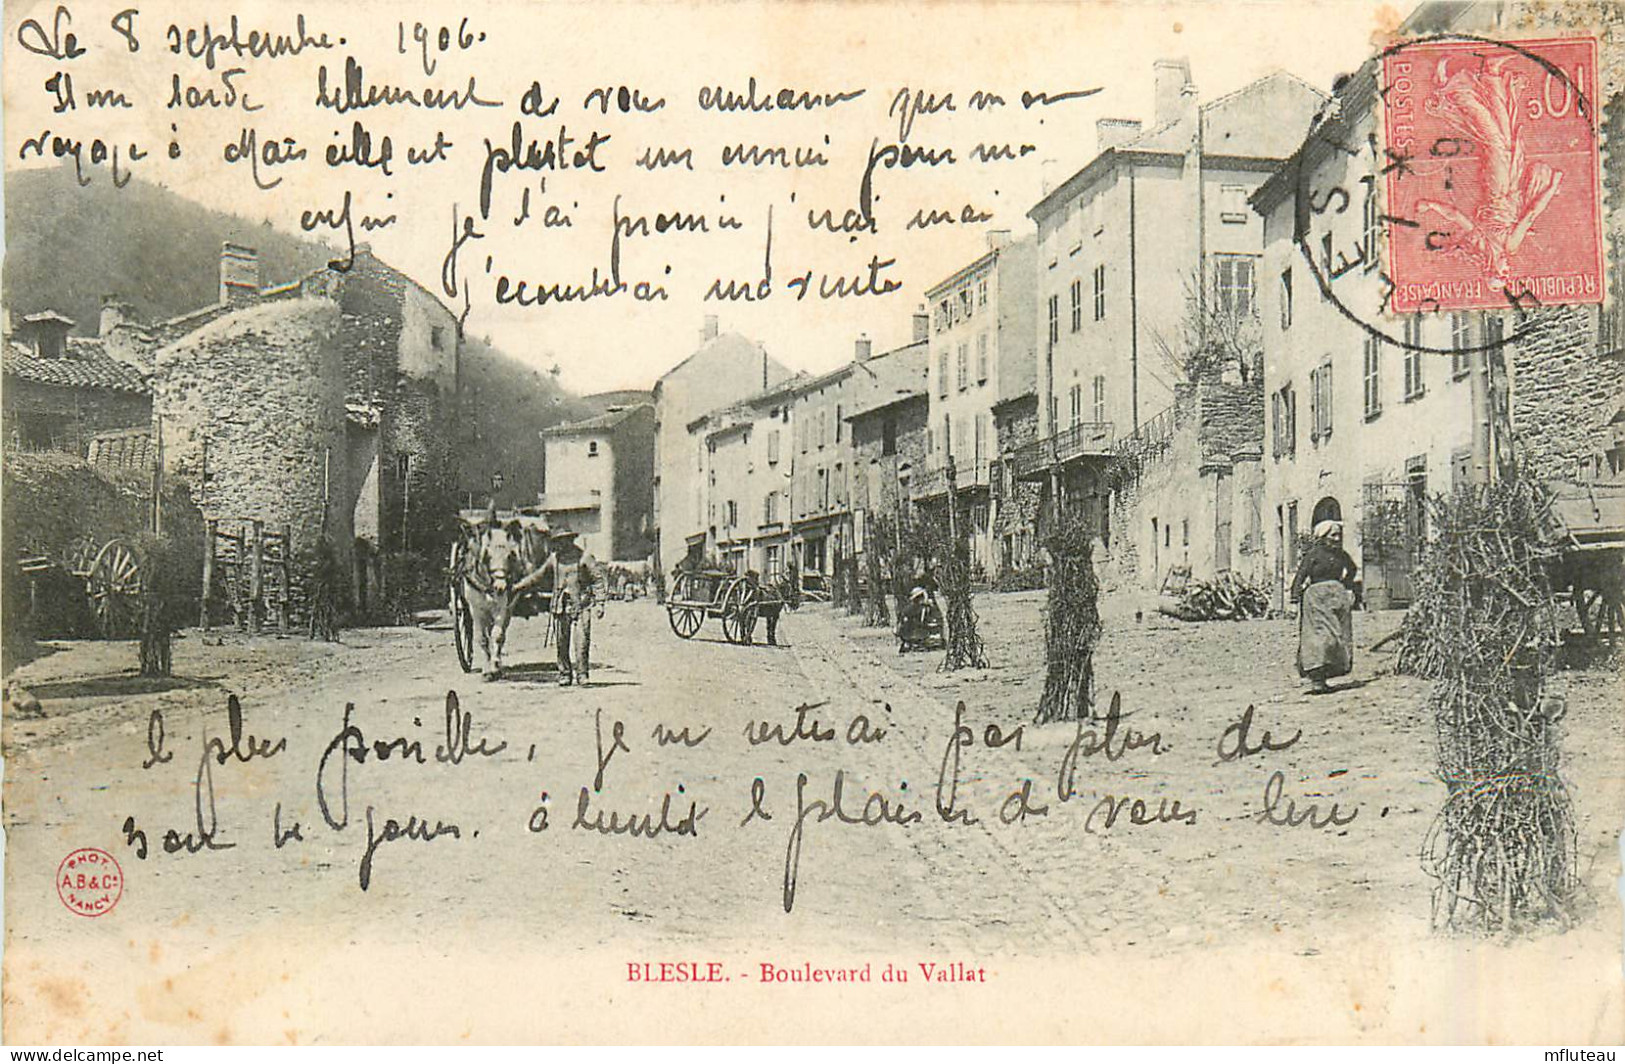 Le 8 septembre. 1906.
Il me tarde tellement de vous embrasser que mon
voyage à Marseille est plustot un ennui pour moi
enfin je l'ai promis j'irai mai
j'écourterai ma visite
le plus possible, je ne resterai pas plus de
3 ou 4 jours. à bientôt le plaisir de vous lire.
10c
POSTES
REPUBLIQUE FRANÇAISE
BLESLE
PHOT.
A.B & Cie
NANCY
BLESLE. - Boulevard du Vallat
mfluteau
http://www.delcampe.net